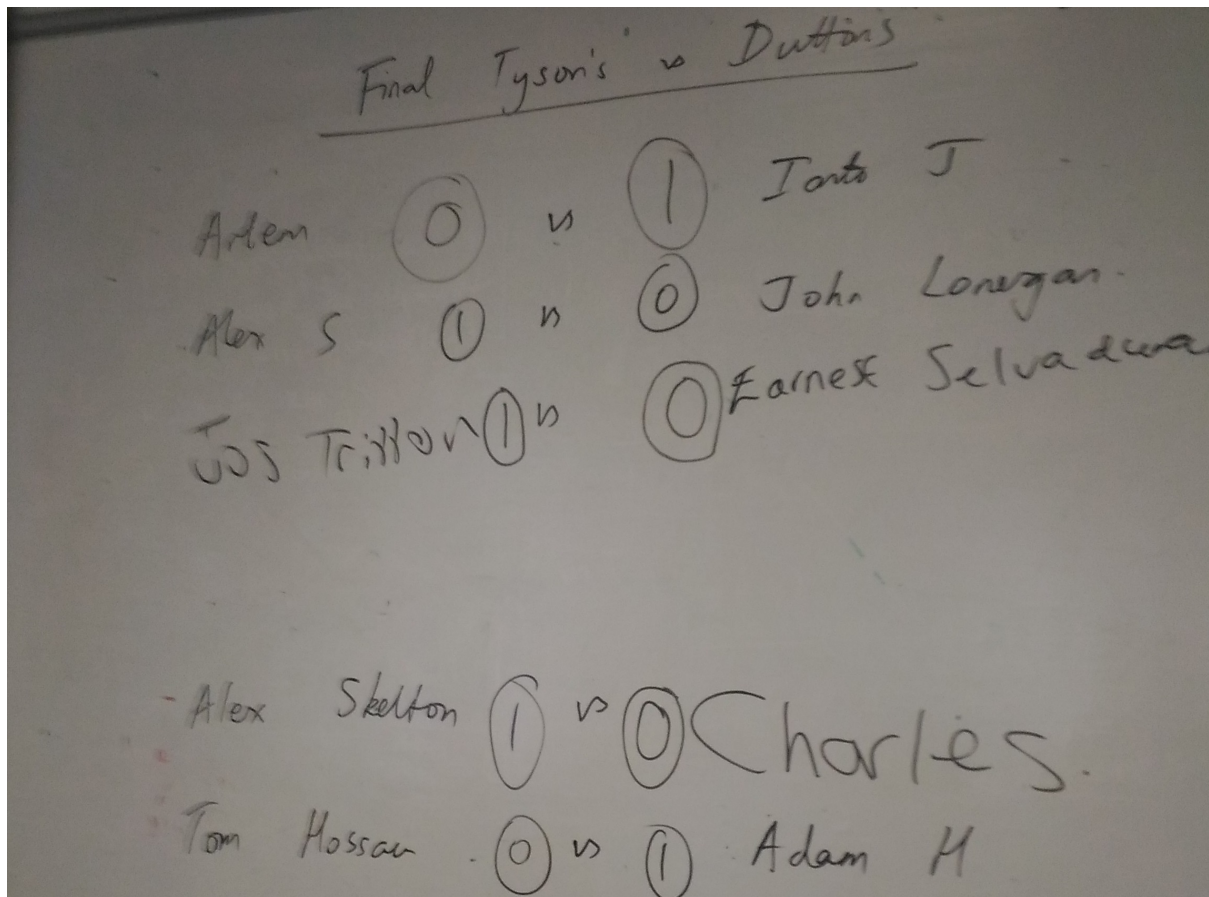 Final Tyson's vs Duttons
Artem 0 vs 1 Ianto J
Alex S 1 vs 0 John Lonergan.
Jos Tritton 1 vs 0 Earnest
Alex Skelton 1 vs 0 Charles.
Tom 0 vs 1 Adam H